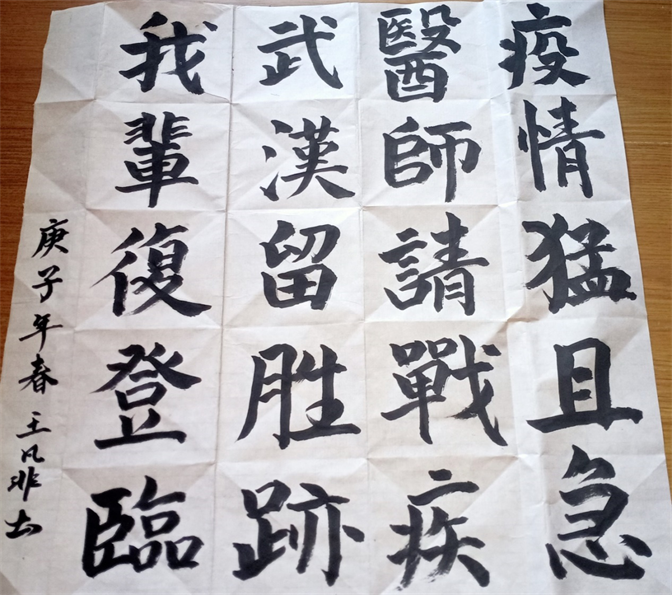 疫情猛且急
醫師請戰疾
武漢留胜跡
我輩復登臨
庚子年春王凡非书